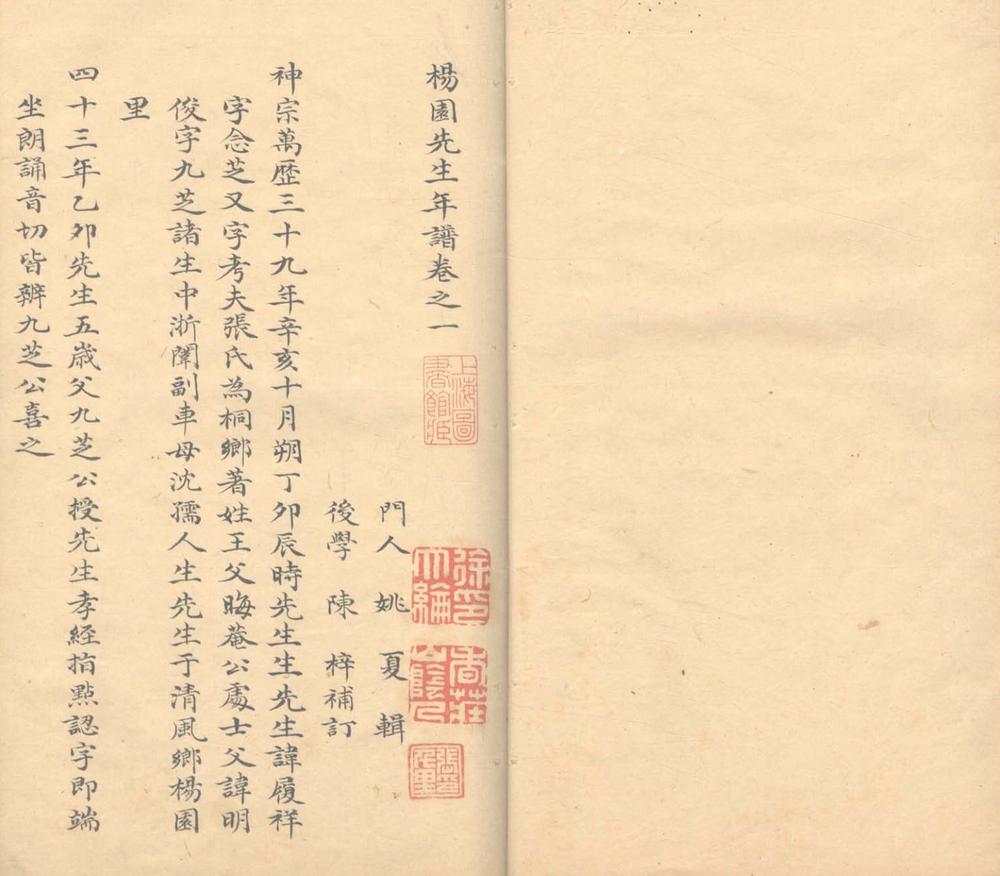 楊園先生年譜卷之一
上海圖
書館臧
門人姚夏輯
後學陳梓補訂
神宗萬歷三十九年辛亥十月朔丁卯辰時先生生先生諱履祥
字念芝又字考夫張氏為桐鄉著姓王父晦菴公處士父諱明
俊字九芝諸生中浙闈副車母沈孺人生先生于清風鄉楊園
里
四十三年乙卯先生五歲父九芝公授先生孝經指點認字即端
坐朗誦音切皆辨九芝公喜之